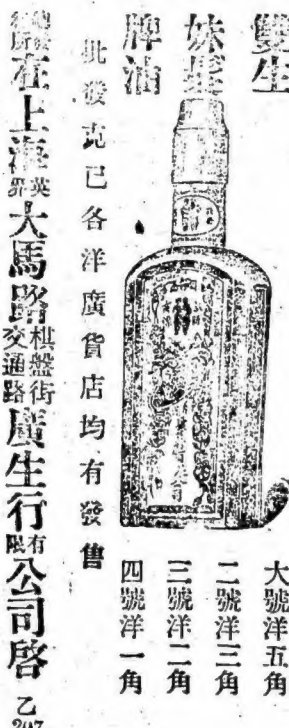 雙生
妹髮
牌油
大號洋五角
二號洋三角
三號洋二角
四號洋一角
批發克已各洋廣貨店均有發售
在上海英界大馬路棋盤街交通路廣生行有限公司啓
乙
207